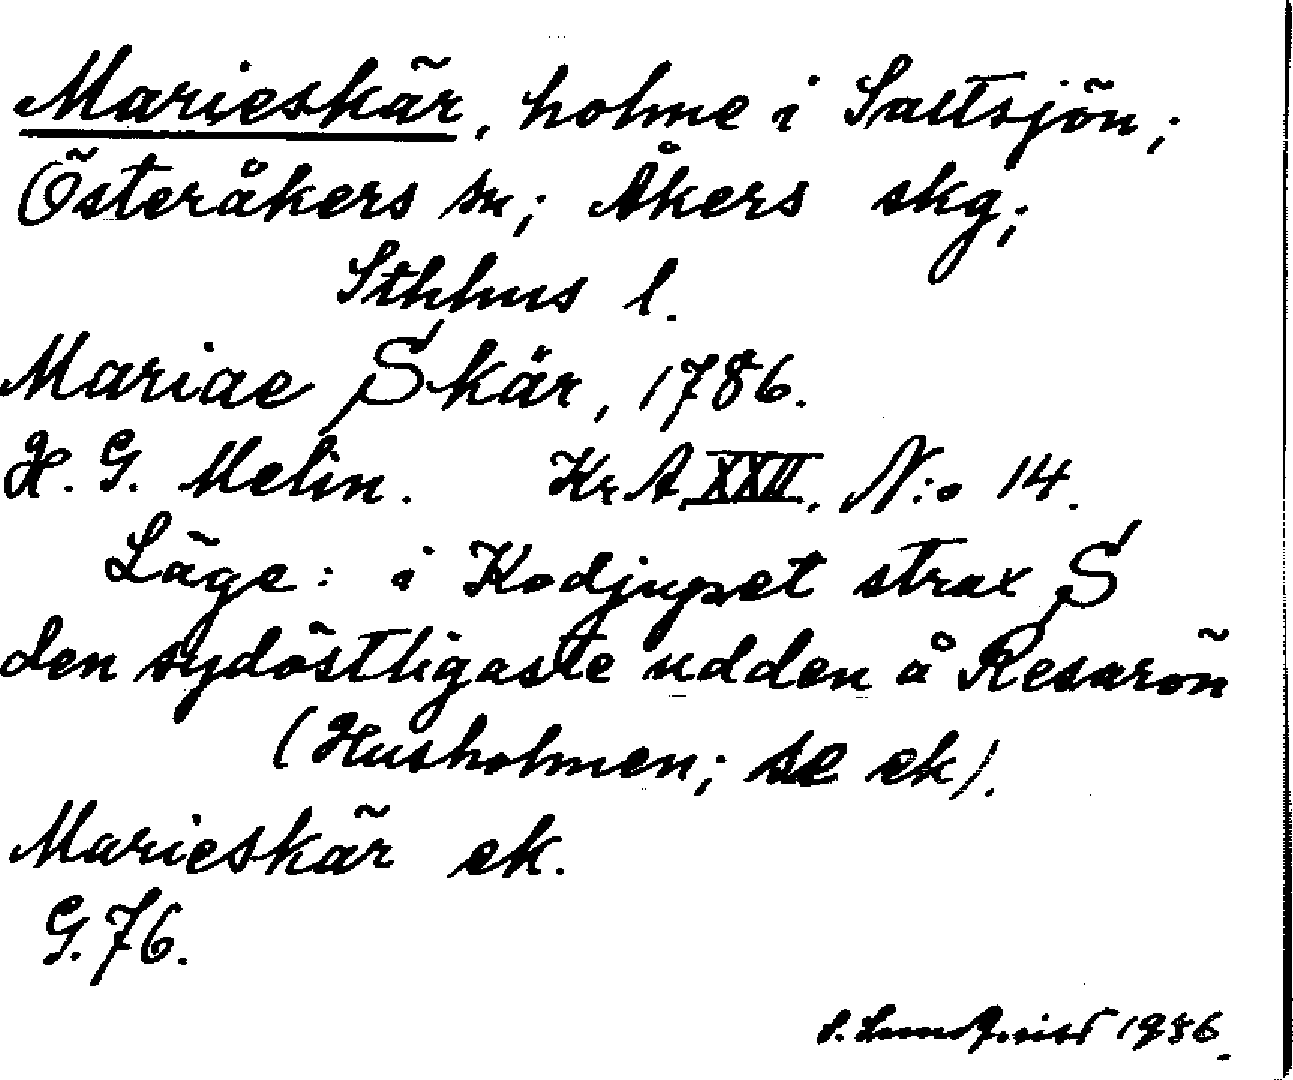 Marieskär, holme i Saltsjön;
Österåkers sn; Åkers skg;
Sthlms l.
Mariae Skär, 1786.
H. G. Melin. Kr A XXII, N:o 14.
Läge: i Kodjupet strax S
den sydöstligaste udden å Resarön
(Husholmen; se ek).
Marieskär ek.
G. 76.
S. Lundqvist 1936